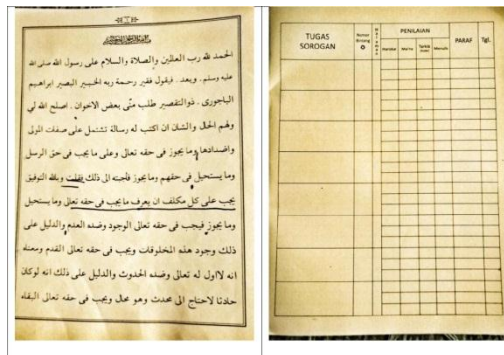 بسم الله الرحمن الرحيم
الحمد لله رب العالمين والصلاة والسلام على رسول الله صلى الله
عليه وسلم . وبعد . فيقول فقير رحمة ربه الخبير البصير ابراهيم
الباجورى . ذوالتقصير طلب منى بعض الاخوان . اصلح الله لي
ولهم الحال والشان ان اكتب له رسالة تشتمل على صفات المولى
واضدادها وما يجوز في حقه تعالى وعلى ما يجب في حق الرسل
وما يستحيل في حقهم وما يجوز فاجبته الى ذلك فقلت وبالله التوفيق
يجب على كل مكلف ان يعرف ما يجب في حقه تعالى وما يستحيل
وما يجوز فيجب في حقه تعالى الوجود وضده العدم والدليل على
ذلك وجود هذه المخلوقات ويجب في حقه تعالى القدم ومعناه
انه لااول له تعالى وضده الحدوث والدليل على ذلك انه لوكان
حادثا لاحتاج الى محدث وهو محال ويجب في حقه تعالى البقاء
TUGAS
SOROGAN
PENILAIAN
PARAF
Tgl.